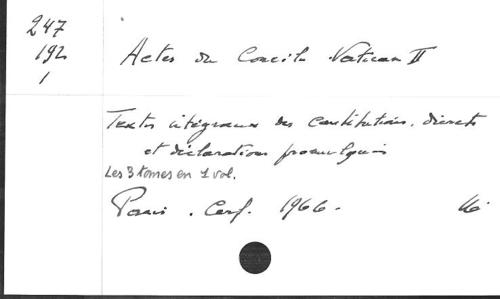 247
192
1
Actes du Concile Vatican II
Textes intégraux des constitutions, décrets
et déclarations promulgués
Les 3 tomes en 1 vol.
Paris. Cerf. 1966.